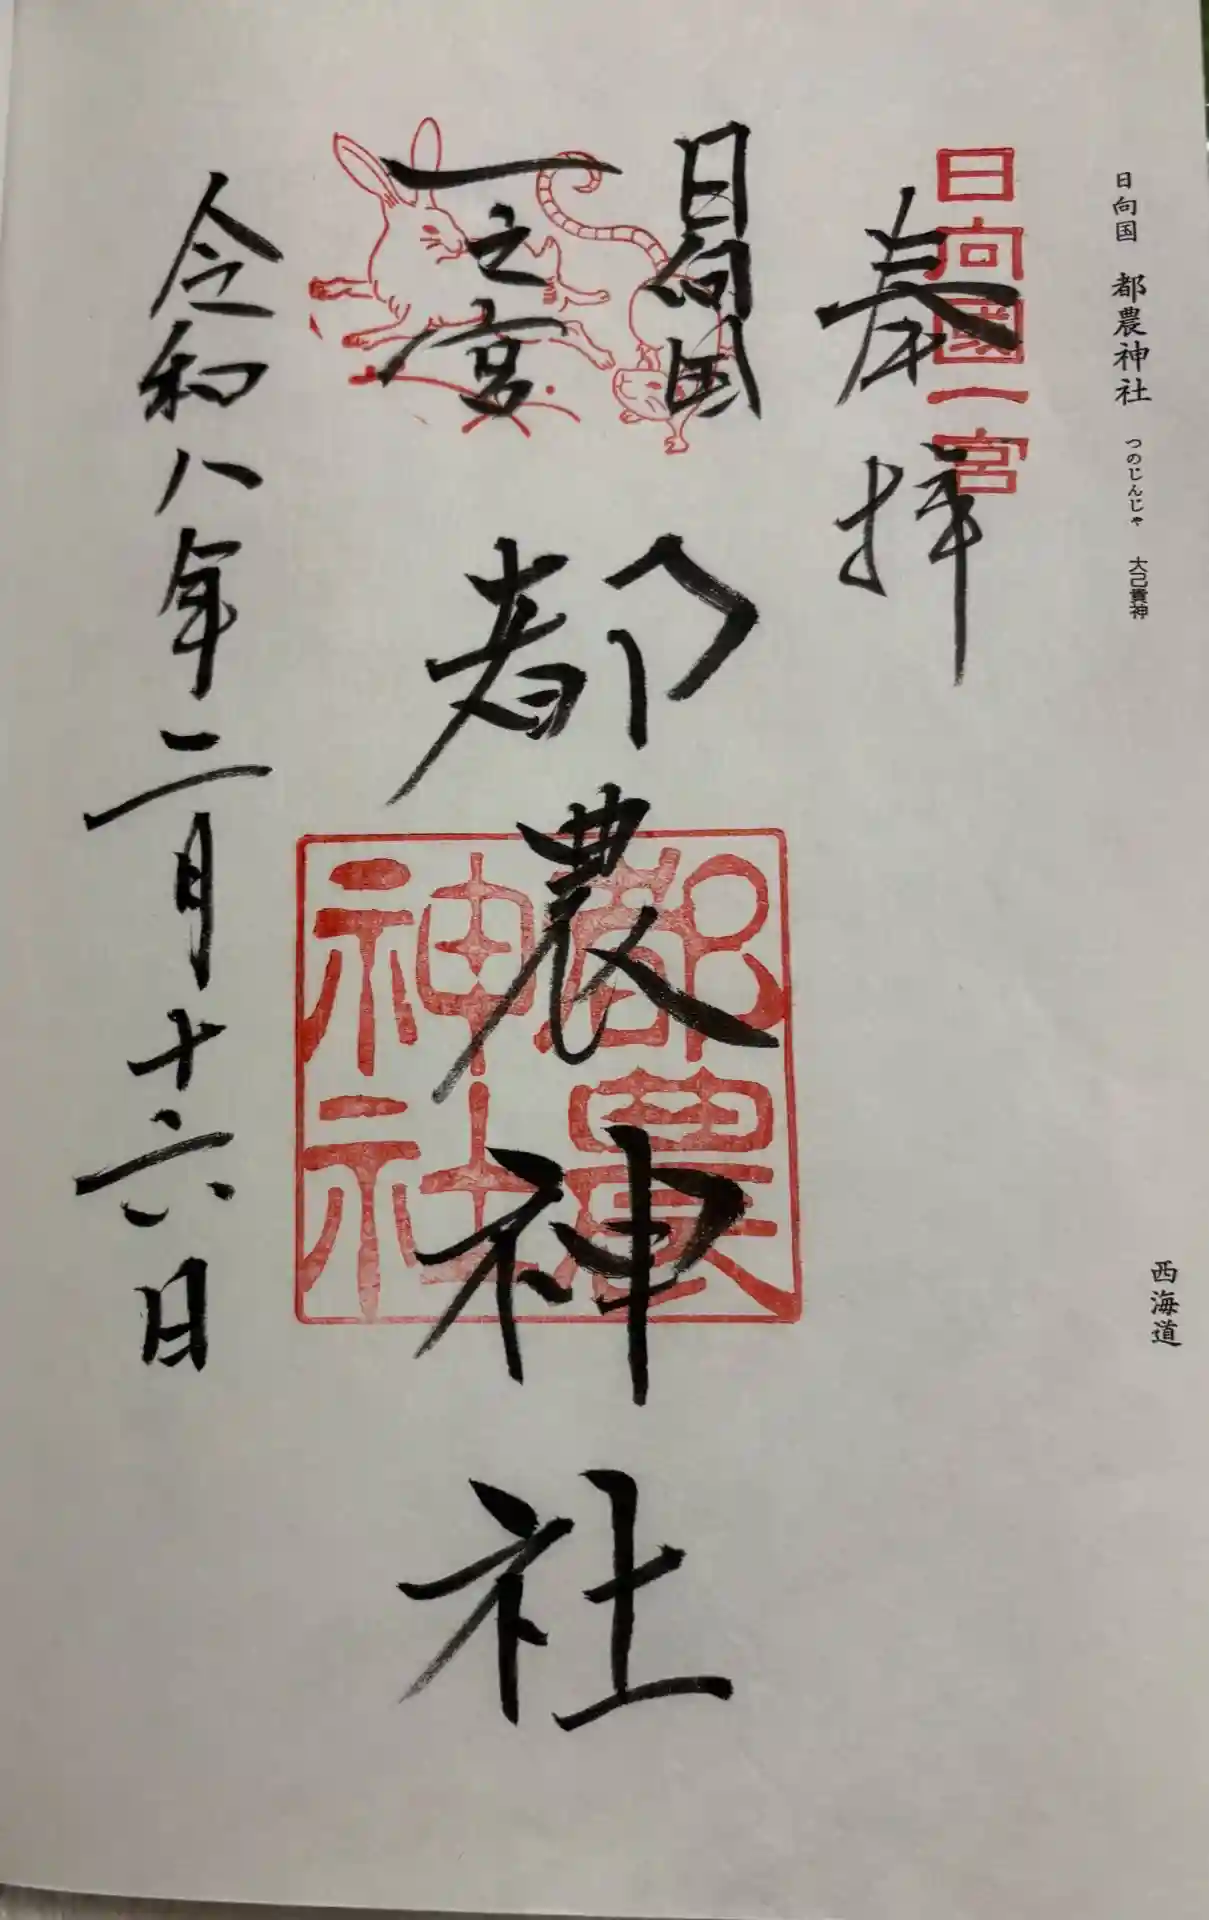 日向国 都農神社 つのじんじゃ 大己貴神
西海道
日向國一宮
奉拝
日向国
一之宮
都農神社
都農
神社
令和八年二月十六日